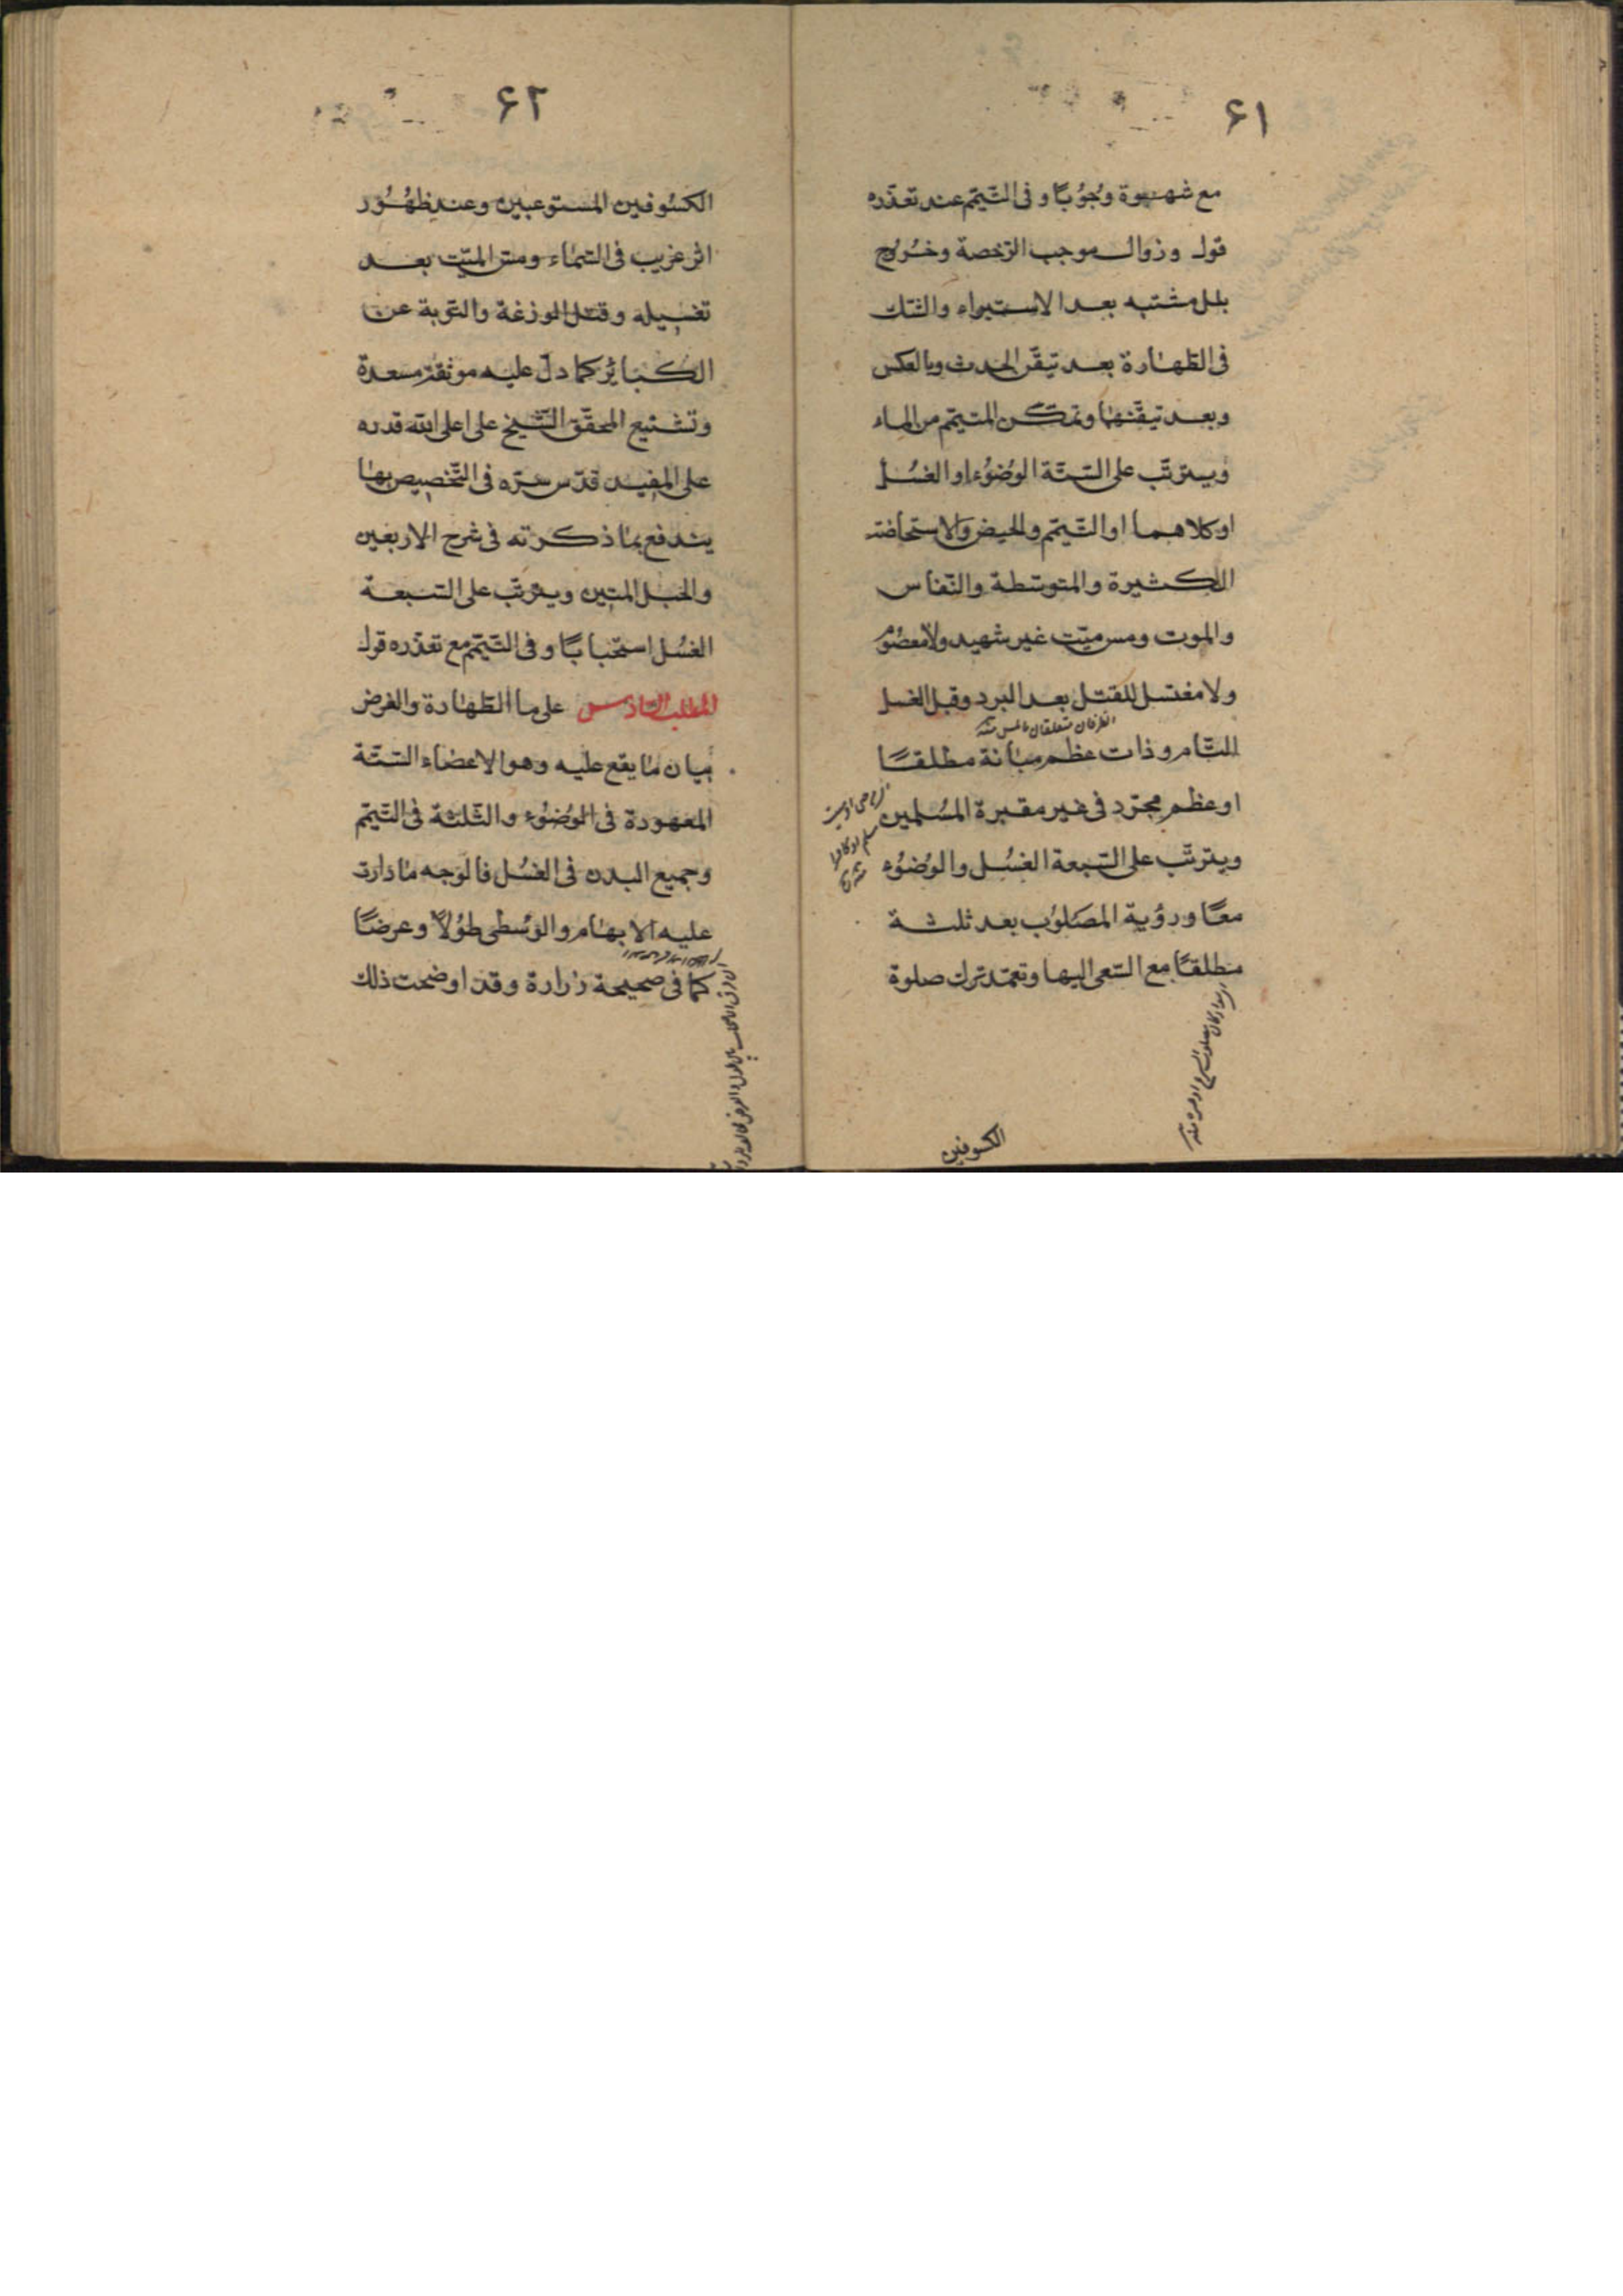 ٦١
مع شهوة وجُوبًا و فى التّيمّم عند تعذّره
قول وزوال موجب الرّخصة وخُروج
بلل مشتبه بعد الاستبراء والشّك
فى الطّهارة بعد تيقّن الحدث وبالعكس
وبعد تيقّنهما وتمكّن المتيمّم من الماء
ويترتّب على السّتّة الوُضوُء او الغسُل
اوكلاهما او التّيمّم والحيض والاستحاضة
الكثيرة والمتوسّطة والنّفاس
والموت ومس ميّت غير شهيد ولا معصُوم
ولا مغتسل للقتل بعد البرد وقبل الغسل
الظرفان متعلقان بالمس منه
التّام وذات عظم مبانة مطلقًا
او عظم مجرّد فى غير مقبرة المسُلمين
ويترتّب على السّبعة الغسُل والوُضوُء
معًا ورؤية المصَلوُب بعد ثلثة
مطلقًا مع السّعى اليها وتعمّد ترك صلوة
الكسوفين
٦٢
الكسُوفين المستوعبين وعند ظهُوُر
اثر غريب فى السّماء ومسّ الميّت بعد
تغسيله وقتل الوزغة والتّوبة عن
الكبائر كما دلّ عليه موثقة مسعدة
وتشنيع المحقّق الشّيخ على اعلى الله قدره
على المفيد قدّس سرّه فى التّخصيص بها
يندفع بما ذكرته فى شرح الاربعين
والحبل المتين ويترتّب على السّبعة
الغسُل استحبابًا و فى التّيمّم مع تعذّره قول
المطلب السّادس على ما الطّهارة والغرض
بيان ما يقع عليه وهو الاعضاء السّتّة
المعهودة فى الوُضوُء والثّلثة فى التّيمّم
وجميع البدن فى الغسُل فالوَجه ما دارت
عليه الابهام والوُسطى طوُلاً وعرضًا
كما فى صحيحة زرارة وقد اوضحت ذلك